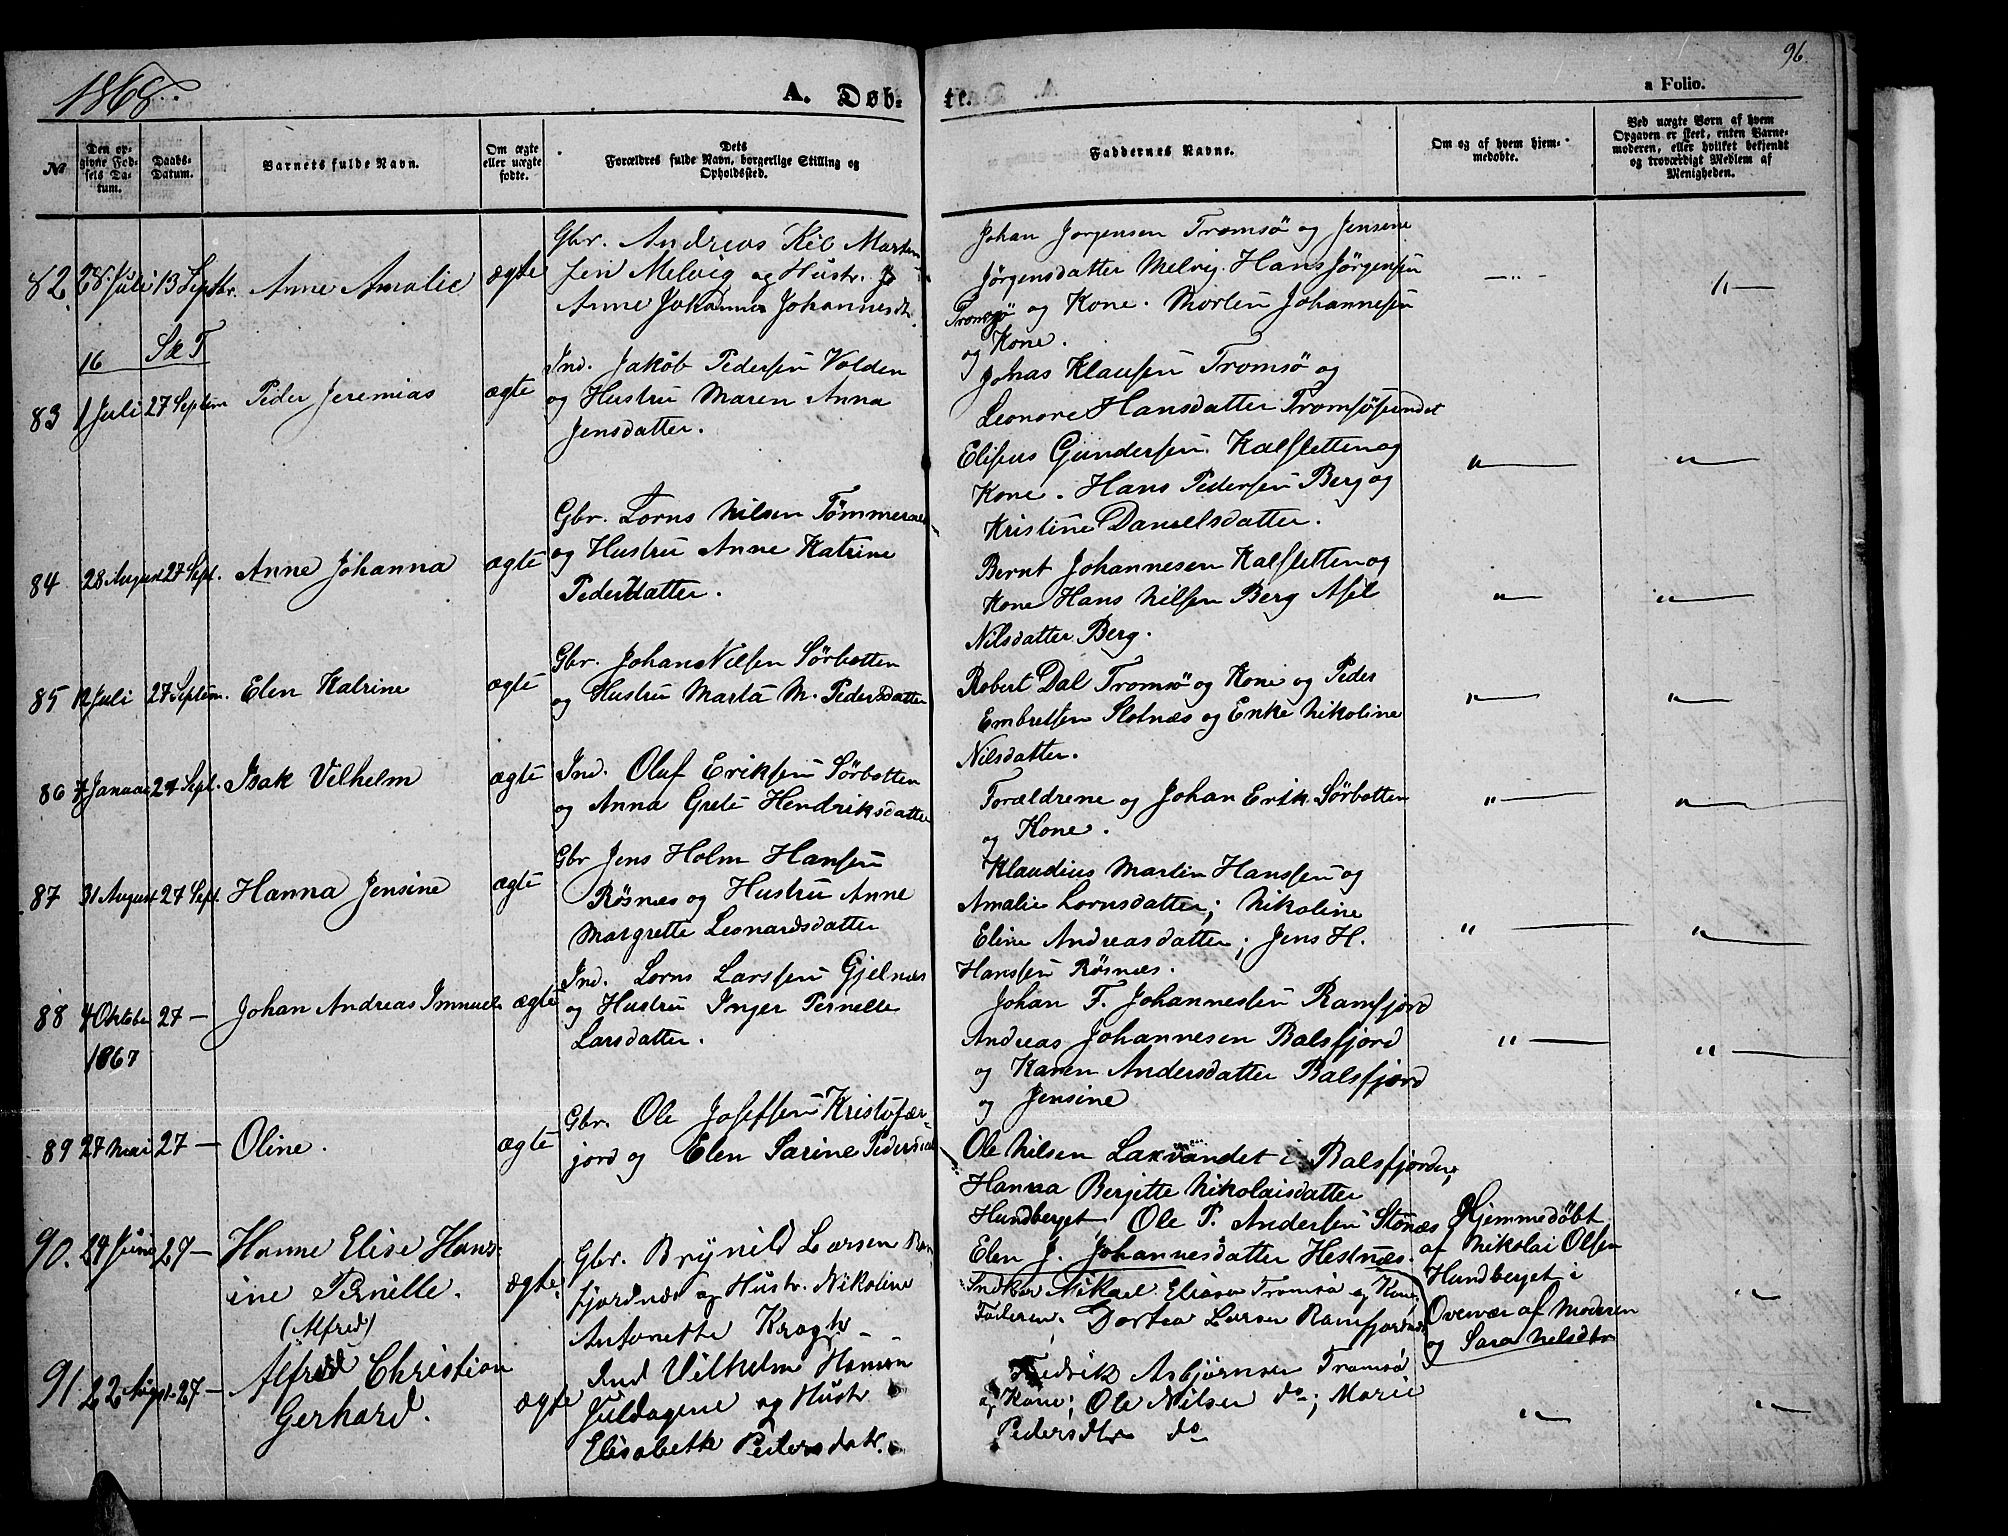 1868.
A. Døb-
te.
96
a Folio.
No
Den op-
givne Fød-
sels Da-
tum.
Daabs-
Datum.
Barnets fulde Navn.
Om ægte
eller uægte
fødte.
Dets
Forældres fulde Navn, borgerlige Stilling og
Opholdssted.
Faddernes Navne.
Om og af hvem hjem-
medøbte.
Ved uægte Børn af hvem
Opgaven er skeet, enten Barne-
moderen, eller hvilket bekjendt
og troværdigt Medlem af
Menigheden.
82. 28 Juli 13 Septbr. Anne Amalie ægte
Gbr. Andreas Kil Morten-
sen Melvig og Hustr.
Anne Johanna Johannesdtr.
Johan Jørgensen Tromsø og Jensine
Jørgensdatter Melvig. Hans Jørgensen
Tromsø og Kone. Morten Johannesen
og Kone.
16 S e T
83 1 Juli 27 Septem Peder Jeremias ægte
Ind. Jakob Pedersen Volden
og Hustru Maren Anna
Jensdatter.
Johas Klausen Tromsø og
Leonore Hansdatter Tromsøsundet
Elisæus Gundersen Kalsletten og
Kone. Hans Pedersen Berg og
Kristine Danielsdatter.
84 28 August 27 Sept. Anne Johanna ægte
Gbr. Lorns Nilsen Tømmeraas
og Hustru Anne Katrine
Pedersdatter.
Bernt Johannesen Kalsletten og
Kone Hans Nilsen Berg Asel
Nilsdatter Berg.
85 12 Juli 27 Septem. Elen Katrine ægte
Gbr. Johan Nilsen Sørbotten
og Hustru Marta M. Pedersdatter
Robert Dal Tromsø og Kone og Peder
Embretsen Slotnæs og Enke Nikoline
Nilsdatter.
86 7 Januar 27 Sept. Isak Vilhelm ægte
Ind. Oluf Eriksen Sørbotten
og Anna Grete Hendriksdatter
Forældrene og Johan Erik. Sørbotten
og Kone.
87 31 August 27 Sept. Hanna Jensine ægte
Gbr Jens Holm Hansen
Røsnæs og Hustru Anne
Margrette Leonardsdatter
Klaudius Martin Hanssen og
Amalie Lornsdatter; Nikoline
Eline Andreasdatter; Jens H.
Hanssen Røsnæs.
88 4 Oktober 27 — Johan Andreas Imnuel ægte
1867
Ind. Lorns Larssen Gjelnæs
og Hustru Inger Pernelle
Larsdatter.
Johan F. Johannessen Ramfjord
Andreas Johannesen Balsfjord
og Karen Andersdatter Balsfjord
og Jensine
89 27 Mai 27 — Oline. ægte
Gbr. Ole Josefsen Kristofær-
jord og Elen Sarine Pedersdat
Ole Nilsen Laxvandet i Balsfjorden;
Hanna Bergitte Nikolaisdatter
Hundberget Ole P. Andersen Stønæs
Elen J. Johannesdatter Hestnæs.
90. 24 Juni 27 — Hanne Elise Hans-
ine Pernille. ægte.
Gbr. Brynild Larsen Ram
fjordnæs og Hustr. Nikoline
Antonette Krogh
Indker Mikael Eliasen Tromsø og Kone
Faderen. Dortea Larsen Ramfjordnæs
Hjemmedøbt
af Nikolai Olsen
Hundberget i
Overvær af Moderen
og Sara Nilsdtr
(Alfred)
91 22 August 27 — Alfred Christian
Gerhard. ægte
Ind Vilhelm Hansen
Juldagene og Hustr
Elisabeth Pedersdatr.
Fredrik Asbjørnsen Tromsø
og Kone; Ole Nilsen do; Marie
Pedersdtr do